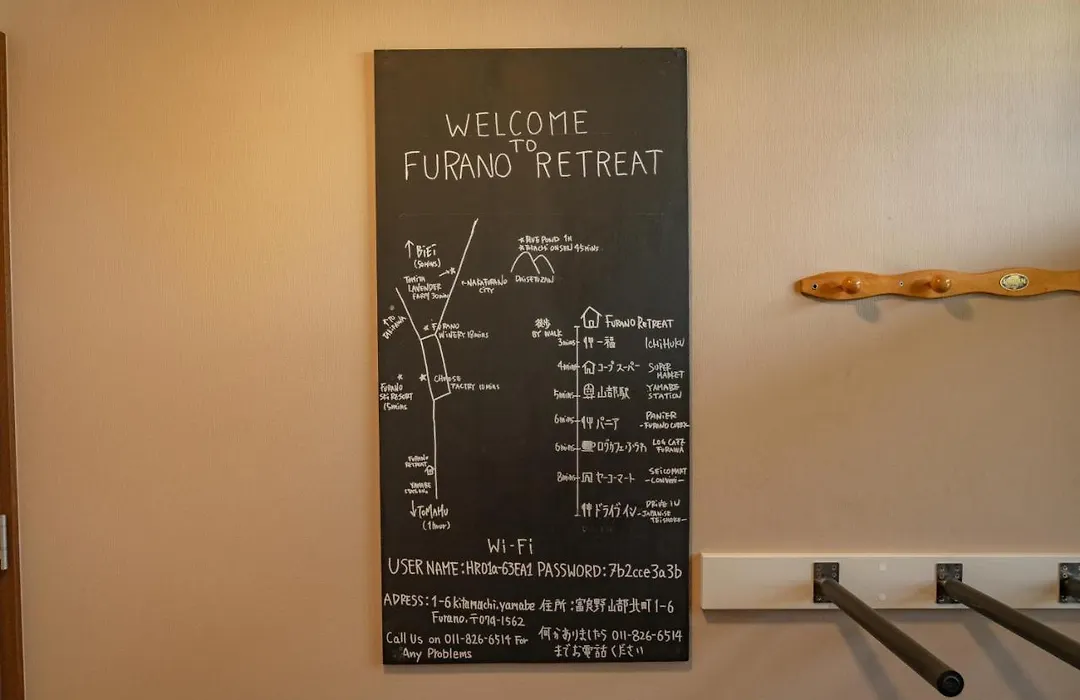 WELCOME
TO
FURANO RETREAT
↑ BiEi
(50mins)
TOMITA
LAVENDER
FARM 30mins
NAKAFURANO
CITY
* BLUE POND 1H
DAISETSUZAN
FURANO
WINERY 18mins
FURANO
15mins
FURANO
RETREAT
YAMABE
↓TOMAMU
(1hour)
徒歩
BY WALK
FURANO RETREAT
3mins 一福 ICHIFUKU
4mins コープスーパー SUPER
MARKET
5mins 山部駅 YAMABE
STATION
6mins パニア PANIER
6mins ログカフェふらわ LOG CAFE
FURAWA
8mins セーコーマート SEICOMART
ドライブイン DRIVE IN
Wi-Fi
USER NAME:HR01a-63EA1 PASSWORD:7b2cce3a3b
ADRESS:1-6 Kitamachi,yamabe
Furano,〒079-1562
住所:富良野山部北町1-6
Call Us on 011-826-6514 For
Any Problems
何かありましたら 011-826-6514
までお電話ください